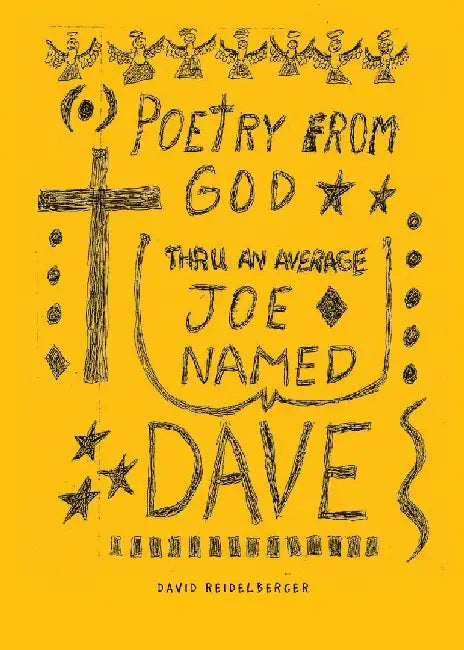 POETRY FROM
GOD
THRU AN AVERAGE
JOE
NAMED
DAVE
DAVID REIDELBERGER